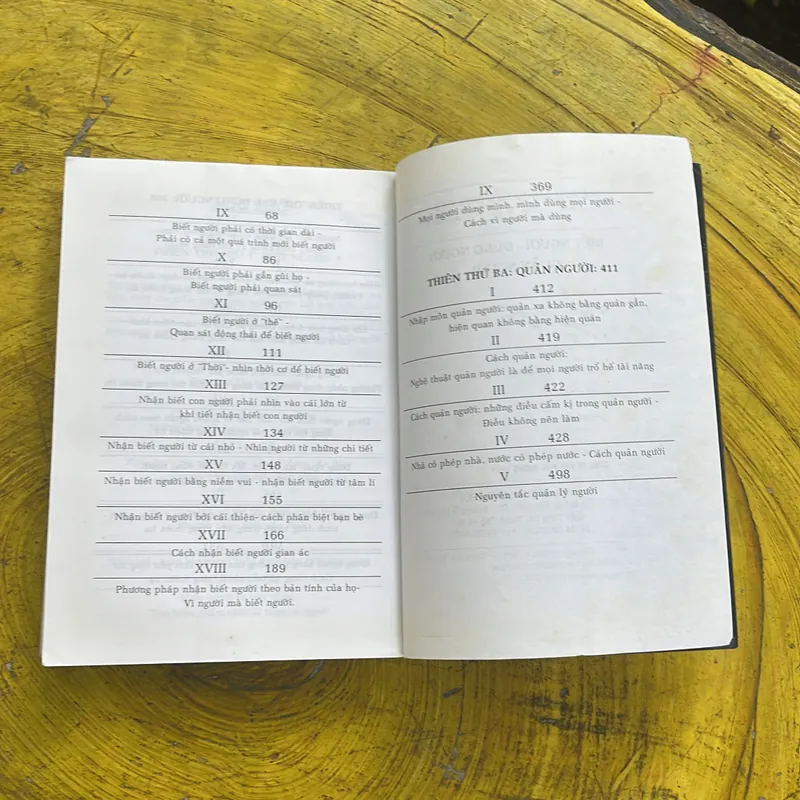 IX 68
Biết người phải có thời gian dài -
Phải có cả một quá trình mới biết người
X 86
Biết người phải gần gũi họ -
Biết người phải quan sát
XI 96
Biết người ở "thế" -
Quan sát động thái để biết người
XII 111
Biết người ở "Thời"- nhìn thời cơ để biết người
XIII 127
Nhận biết con người phải nhìn vào cái lớn từ
khi tiết nhận biết con người
XIV 134
Nhận biết người từ cái nhỏ - Nhìn người từ những chi tiết
XV 148
Nhận biết người bằng niềm vui - nhận biết người từ tâm lí
XVI 155
Nhận biết người bởi cái thiện- cách phân biệt bạn bè
XVII 166
Cách nhận biết người gian ác
XVIII 189
Phương pháp nhận biết người theo bản tính của họ-
Vì người mà biết người.
IX 369
Mọi người dùng mình, mình dùng mọi người -
Cách vì người mà dùng
THIÊN THỨ BA: QUẢN NGƯỜI: 411
I 412
Nhập môn quản người: quản xa không bằng quản gần,
hiện quan không bằng hiện quản
II 419
Cách quản người:
Nghệ thuật quản người là để mọi người trổ hề tài năng
III 422
Cách quản người; những điều cấm kị trong quản người -
Điều không nên làm
IV 428
Nhà có phép nhà, nước có phép nước - Cách quản người
V 498
Nguyên tắc quản lý người